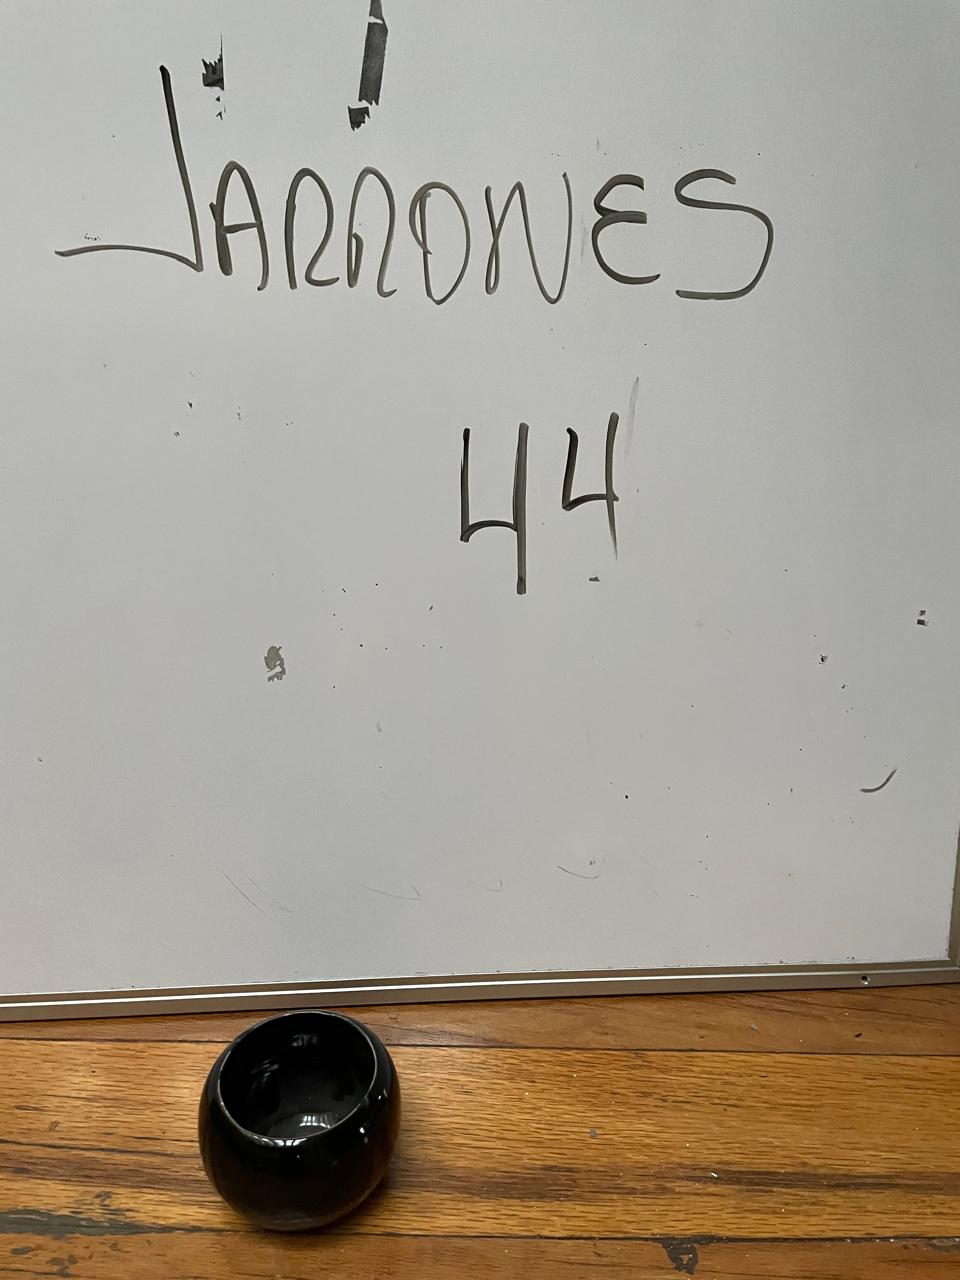 JARRONES
44